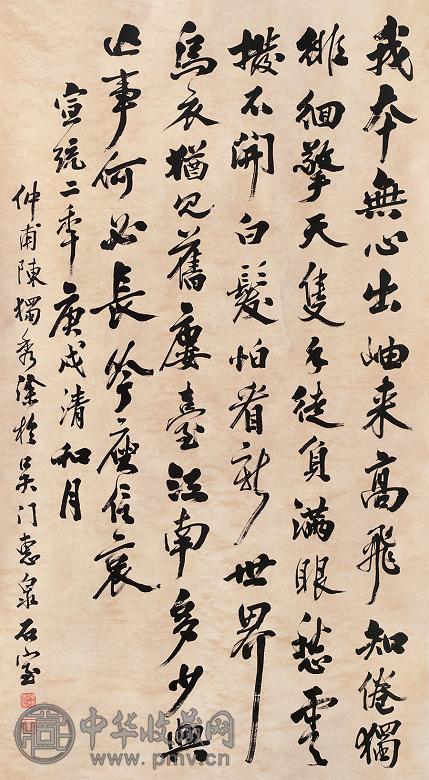 我本無心出岫来高飛知倦獨
徘徊擎天隻手徒負滿眼愁雲
撥不開白髮怕看新世界
烏衣猶見舊廔臺江南多少興
亡事何必長吟庾信哀
宣統二年庚戌清和月
仲甫陳獨秀塗於吴门惠泉石室
中华收藏网
www.pmv.cn